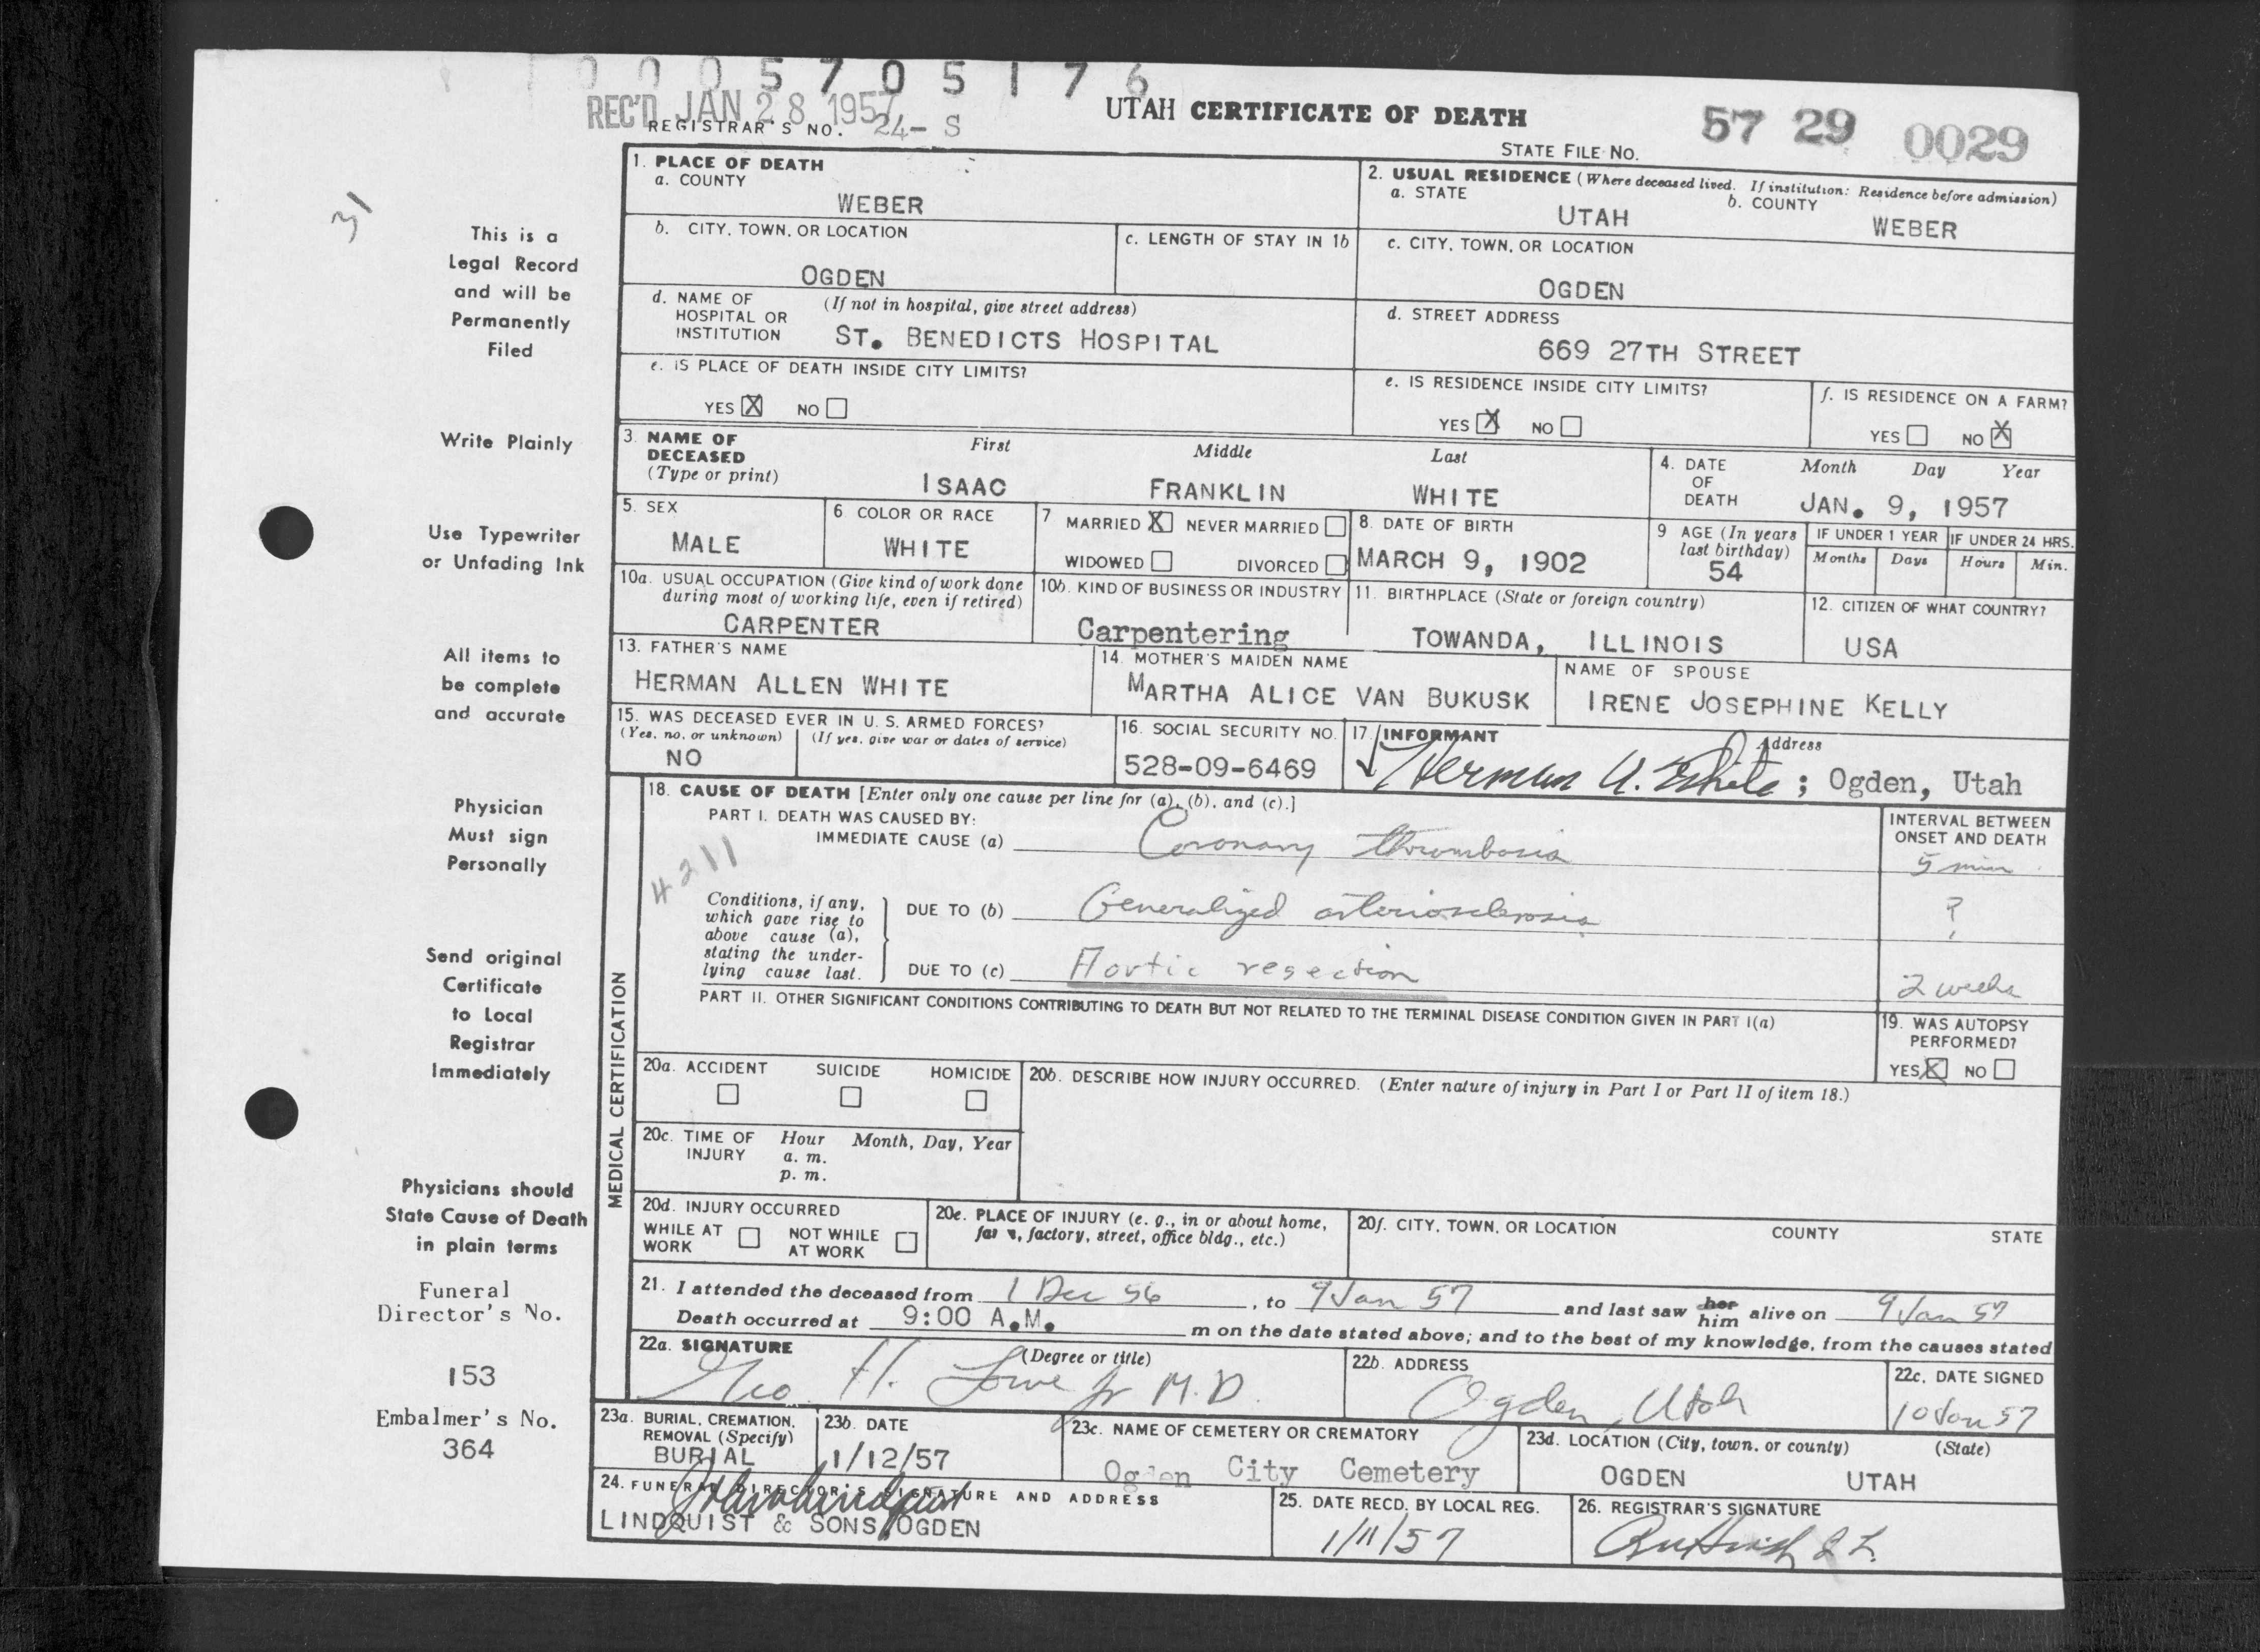 0005705176
REC'D JAN 28 1957
REGISTRAR'S NO. 24-S
UTAH CERTIFICATE OF DEATH
STATE FILE NO.
57 29 0029
31
This is a
Legal Record
and will be
Permanently
Filed
Write Plainly
Use Typewriter
or Unfading Ink
All items to
be complete
and accurate
Physician
Must sign
Personally
Send original
Certificate
to Local
Registrar
Immediately
Physicians should
State Cause of Death
in plain terms
Funeral
Director's No.
153
Embalmer's No.
364
1. PLACE OF DEATH
a. COUNTY
WEBER
2. USUAL RESIDENCE (Where deceased lived. If institution: Residence before admission)
a. STATE
UTAH
b. COUNTY
WEBER
b. CITY, TOWN, OR LOCATION
OGDEN
c. LENGTH OF STAY IN 1b
c. CITY, TOWN, OR LOCATION
OGDEN
d. NAME OF HOSPITAL OR INSTITUTION
(If not in hospital, give street address)
ST. BENEDICTS HOSPITAL
d. STREET ADDRESS
669 27TH STREET
e. IS PLACE OF DEATH INSIDE CITY LIMITS?
YES X NO
e. IS RESIDENCE INSIDE CITY LIMITS?
YES X NO
f. IS RESIDENCE ON A FARM?
YES NO X
3. NAME OF DECEASED
(Type or print)
First Middle Last
ISAAC FRANKLIN WHITE
4. DATE OF DEATH
Month Day Year
JAN. 9, 1957
5. SEX
MALE
6 COLOR OR RACE
WHITE
7 MARRIED X NEVER MARRIED
WIDOWED DIVORCED
8. DATE OF BIRTH
MARCH 9, 1902
9 AGE (In years last birthday)
54
IF UNDER 1 YEAR
Months Days
IF UNDER 24 HRS.
Hours Min.
10a. USUAL OCCUPATION (Give kind of work done during most of working life, even if retired)
CARPENTER
10b. KIND OF BUSINESS OR INDUSTRY
Carpentering
11. BIRTHPLACE (State or foreign country)
TOWANDA, ILLINOIS
12. CITIZEN OF WHAT COUNTRY?
USA
13. FATHER'S NAME
HERMAN ALLEN WHITE
14. MOTHER'S MAIDEN NAME
MARTHA ALICE VAN BUKUSK
NAME OF SPOUSE
IRENE JOSEPHINE KELLY
15. WAS DECEASED EVER IN U. S. ARMED FORCES?
(Yes, no, or unknown) (If yes, give war or dates of service)
NO
16. SOCIAL SECURITY NO.
528-09-6469
17. INFORMANT Address
Herman A. White; Ogden, Utah
MEDICAL CERTIFICATION
18. CAUSE OF DEATH [Enter only one cause per line for (a), (b), and (c).]
PART I. DEATH WAS CAUSED BY:
IMMEDIATE CAUSE (a) Coronary thrombosis
INTERVAL BETWEEN ONSET AND DEATH
5 min
4211
Conditions, if any, which gave rise to above cause (a), stating the underlying cause last.
DUE TO (b) Generalized arteriosclerosis
?
DUE TO (c) Aortic resection
2 weeks
PART II. OTHER SIGNIFICANT CONDITIONS CONTRIBUTING TO DEATH BUT NOT RELATED TO THE TERMINAL DISEASE CONDITION GIVEN IN PART I(a)
19. WAS AUTOPSY PERFORMED?
YES X NO
20a. ACCIDENT SUICIDE HOMICIDE
20b. DESCRIBE HOW INJURY OCCURRED. (Enter nature of injury in Part I or Part II of item 18.)
20c. TIME OF INJURY
Hour Month, Day, Year
a. m.
p. m.
20d. INJURY OCCURRED
WHILE AT WORK NOT WHILE AT WORK
20e. PLACE OF INJURY (e. g., in or about home, factory, street, office bldg., etc.)
20f. CITY, TOWN, OR LOCATION COUNTY STATE
21. I attended the deceased from 1 Dec 56, to 9 Jan 57 and last saw her him alive on 9 Jan 57
Death occurred at 9:00 A.M. m on the date stated above; and to the best of my knowledge, from the causes stated
22a. SIGNATURE (Degree or title)
Geo. H. Lowe Jr M.D.
22b. ADDRESS
Ogden, Utah
22c. DATE SIGNED
10 Jan 57
23a. BURIAL, CREMATION, REMOVAL (Specify)
BURIAL
23b. DATE
1/12/57
23c. NAME OF CEMETERY OR CREMATORY
Ogden City Cemetery
23d. LOCATION (City, town, or county) (State)
OGDEN UTAH
24. FUNERAL DIRECTOR'S SIGNATURE AND ADDRESS
LINDQUIST & SONS OGDEN
25. DATE RECD. BY LOCAL REG.
1/11/57
26. REGISTRAR'S SIGNATURE